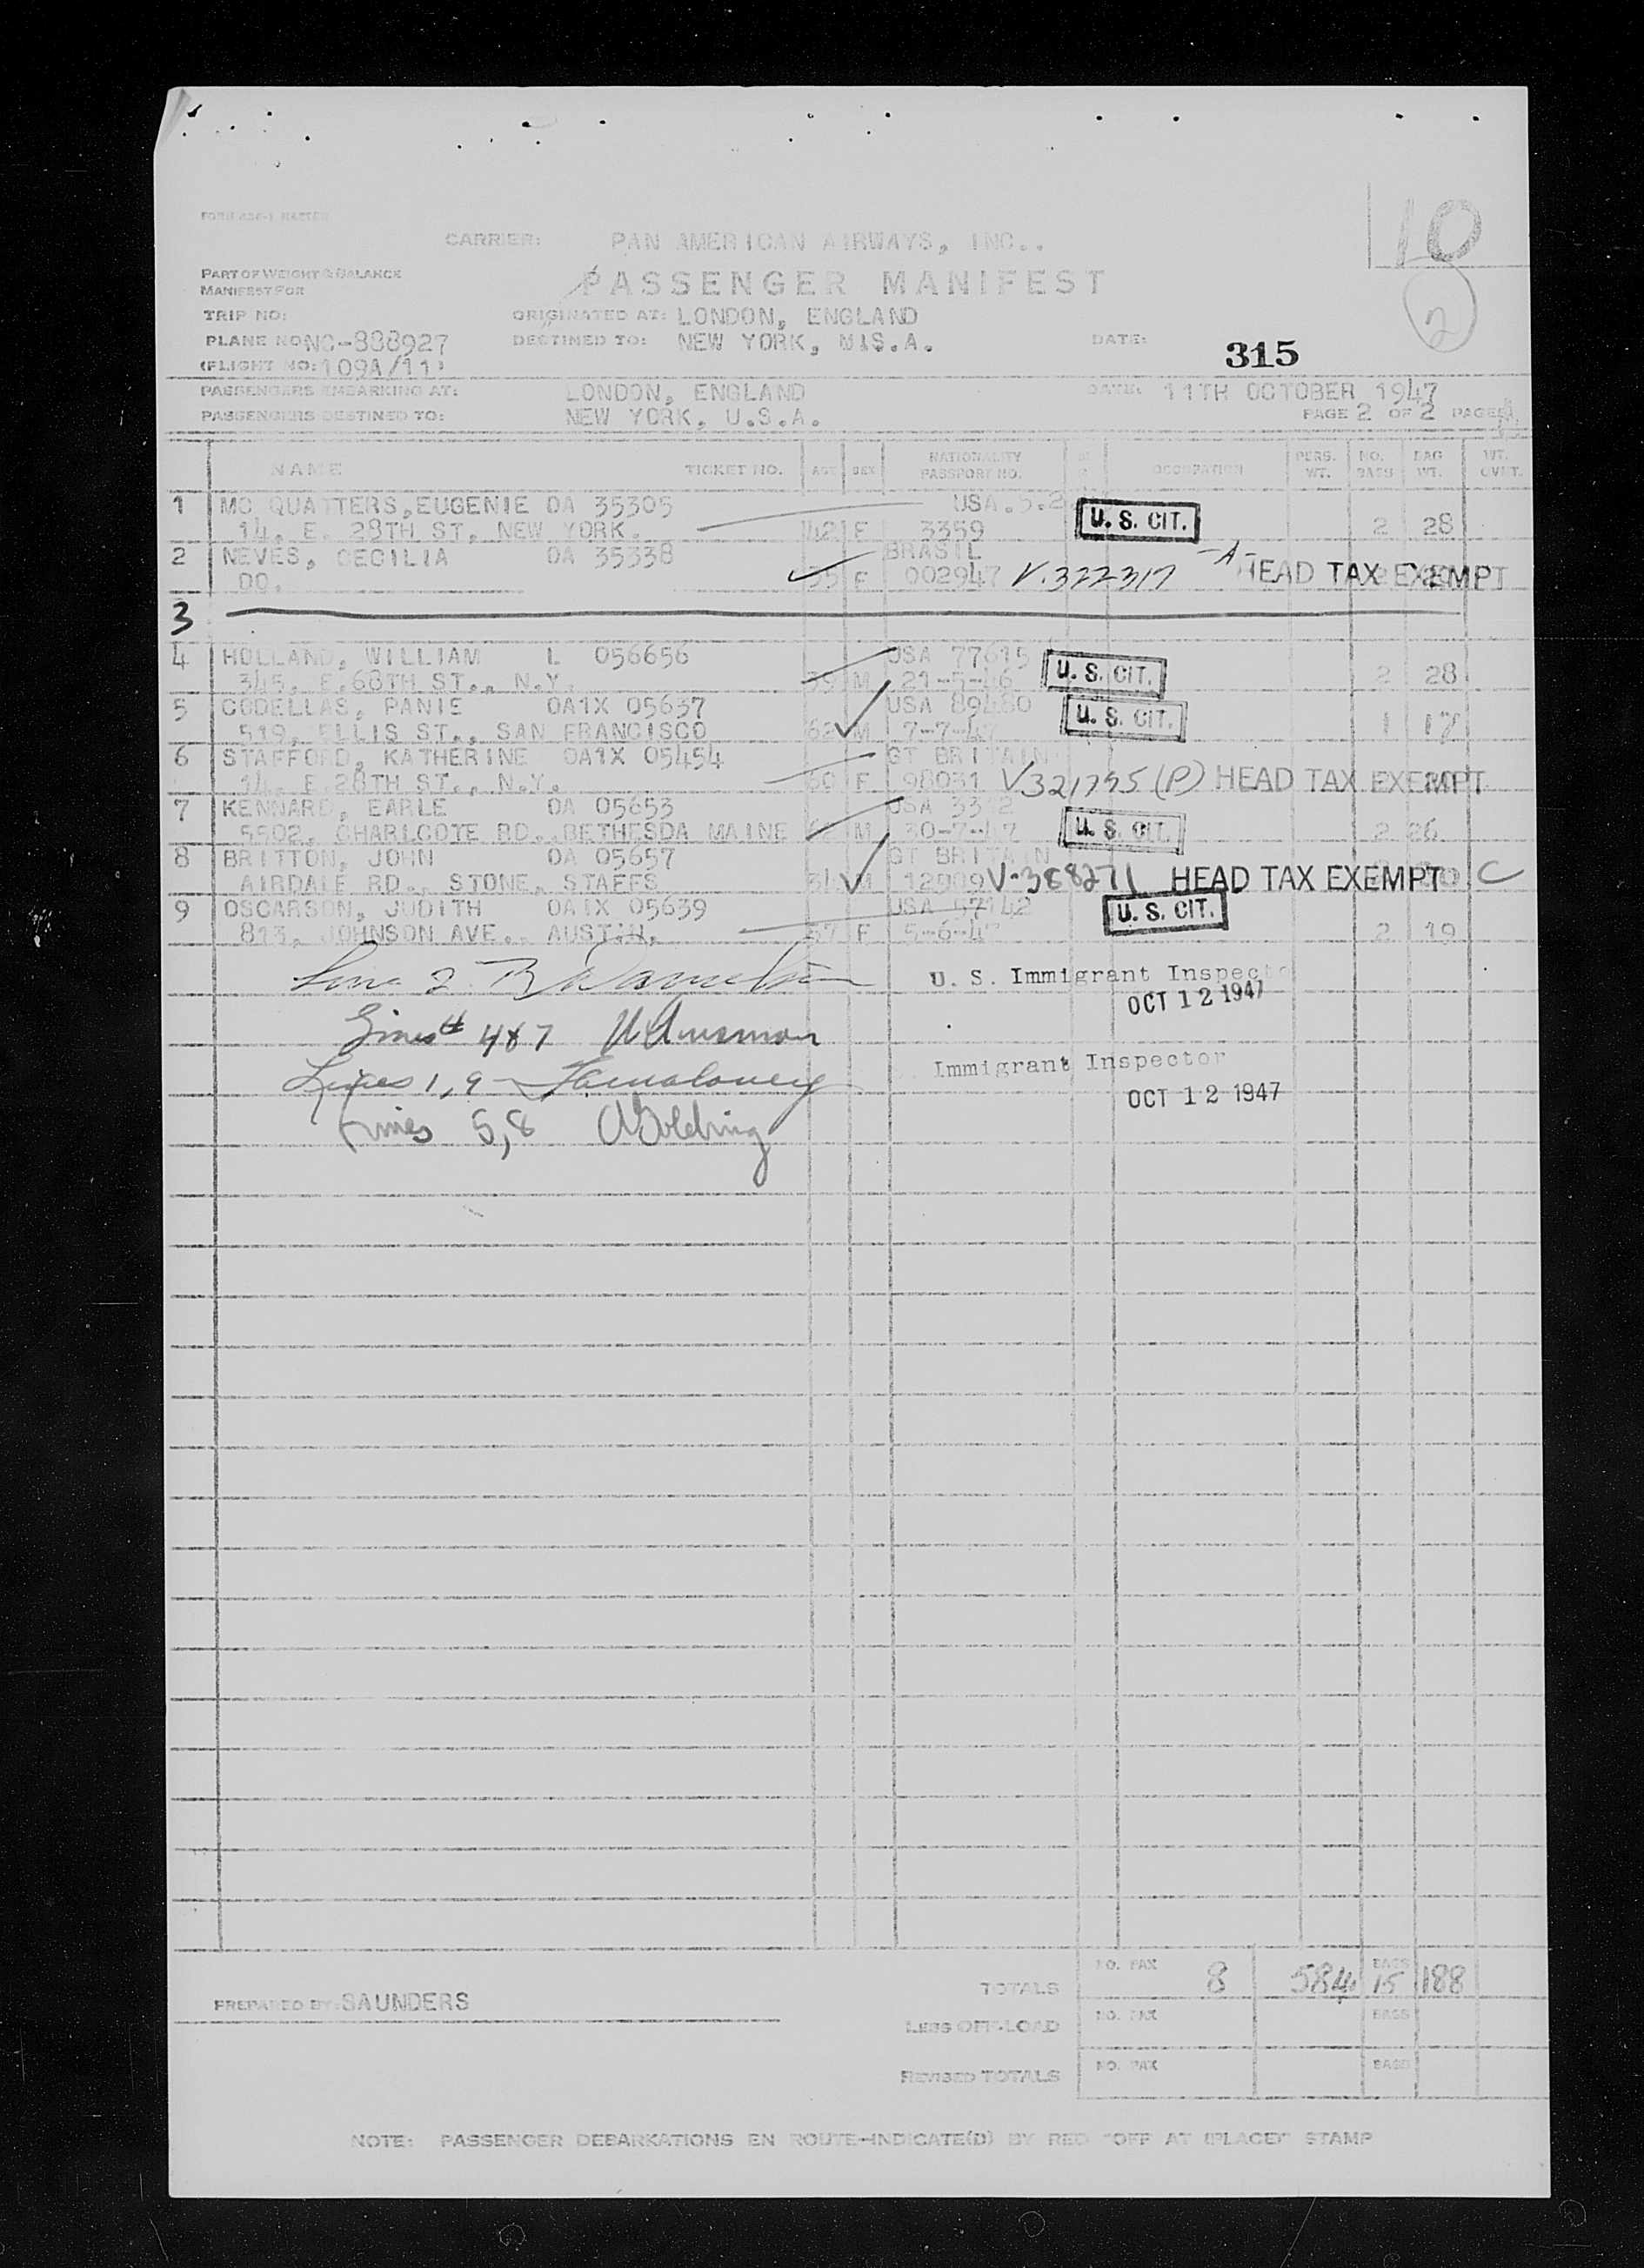 10
2
CARRIER: PAN AMERICAN AIRWAYS, INC..
PART OF WEIGHT & BALANCE
MANIFEST FOR
PASSENGER MANIFEST
TRIP NO:
ORIGINATED AT: LONDON, ENGLAND
PLANE NO NC-888927
DESTINED TO: NEW YORK, U.S.A.
DATE:
315
(FLIGHT NO: 109A/11)
PASSENGERS EMBARKING AT: LONDON, ENGLAND
DATE: 11TH OCTOBER 1947
PASSENGERS DESTINED TO: NEW YORK, U.S.A.
PAGE 2 OF 2 PAGES
NAME TICKET NO. AGE SEX NATIONALITY PASSPORT NO. OCCUPATION PERS. WT. NO. BAGS BAG WT. WT. OVWT.
1 MC QUATTERS, EUGENIE OA 35305 USA
14, E. 28TH ST, NEW YORK. 42 F 3359 U. S. CIT. 2 28
2 NEVES, CECILIA OA 35338 BRASIL
DO. F 002947 V.322317 -A- HEAD TAX EXEMPT
3
4 HOLLAND, WILLIAM L 056656 USA 77615
345, E.68TH ST., N.Y. M U. S. CIT. 2 28
5 CODELLAS, PANIE OA1X 05637 USA
519, ELLIS ST., SAN FRANCISCO 62 M 7-7-47 U. S. CIT. 1 17
6 STAFFORD, KATHERINE OA1X 05454 GT BRITAIN
14, E.28TH ST., N.Y. 60 F 98031 V321795 (P) HEAD TAX EXEMPT
7 KENNARD, EARLE OA 05653 USA
5502, CHARLCOTE RD., BETHESDA MAINE M 30-7-47 U. S. CIT. 2 26
8 BRITTON, JOHN OA 05657 GT BRITAIN
AIRDALE RD., STONE, STAFFS 34 M V-388271 HEAD TAX EXEMPT C
9 OSCARSON, JUDITH OA1X 05639 USA 57142
813, JOHNSON AVE., AUSTIN. 57 F 5-6-47 U. S. CIT. 2 19
U. S. Immigrant Inspector
OCT 12 1947
Lines 4 & 7
Immigrant Inspector
Lines 1, 9
OCT 12 1947
Lines 5, 8 Golding
TOTALS NO. PAX 8 584 BAGS 15 188
PREPARED BY: SAUNDERS
LESS OFF-LOAD NO. PAX BAGS
REVISED TOTALS NO. PAX BAGS
NOTE: PASSENGER DEBARKATIONS EN ROUTE-INDICATE(D) BY RED "OFF AT (PLACE)" STAMP